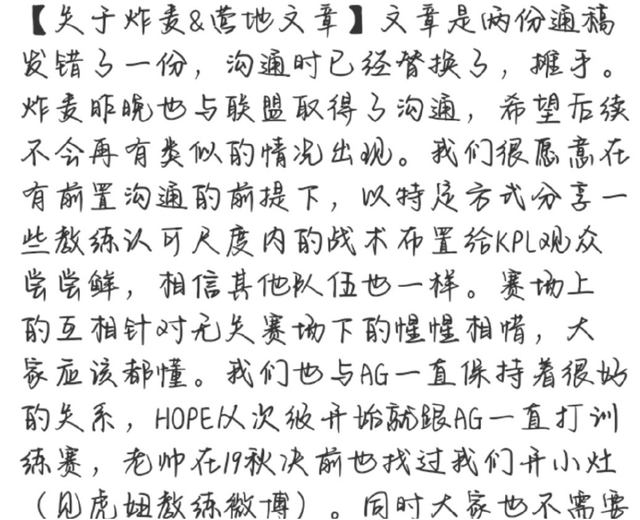 【关于炸麦&营地文章】文章是两份通稿
发错了一份，沟通时已经替换了，摊手。
炸麦昨晚也与联盟取得了沟通，希望后续
不会再有类似的情况出现。我们很愿意在
有前置沟通的前提下，以特定方式分享一
些教练认可尺度内的战术布置给KPL观众
尝尝鲜，相信其他队伍也一样。赛场上
的互相针对无关赛场下的惺惺相惜，大
家应该都懂。我们也与AG一直保持着很好
的关系，HOPE从次级开始就跟AG一直打训
练赛，老帅在19秋决前也找过我们开小灶
（见虎妞教练微博）。同时大家也不需要